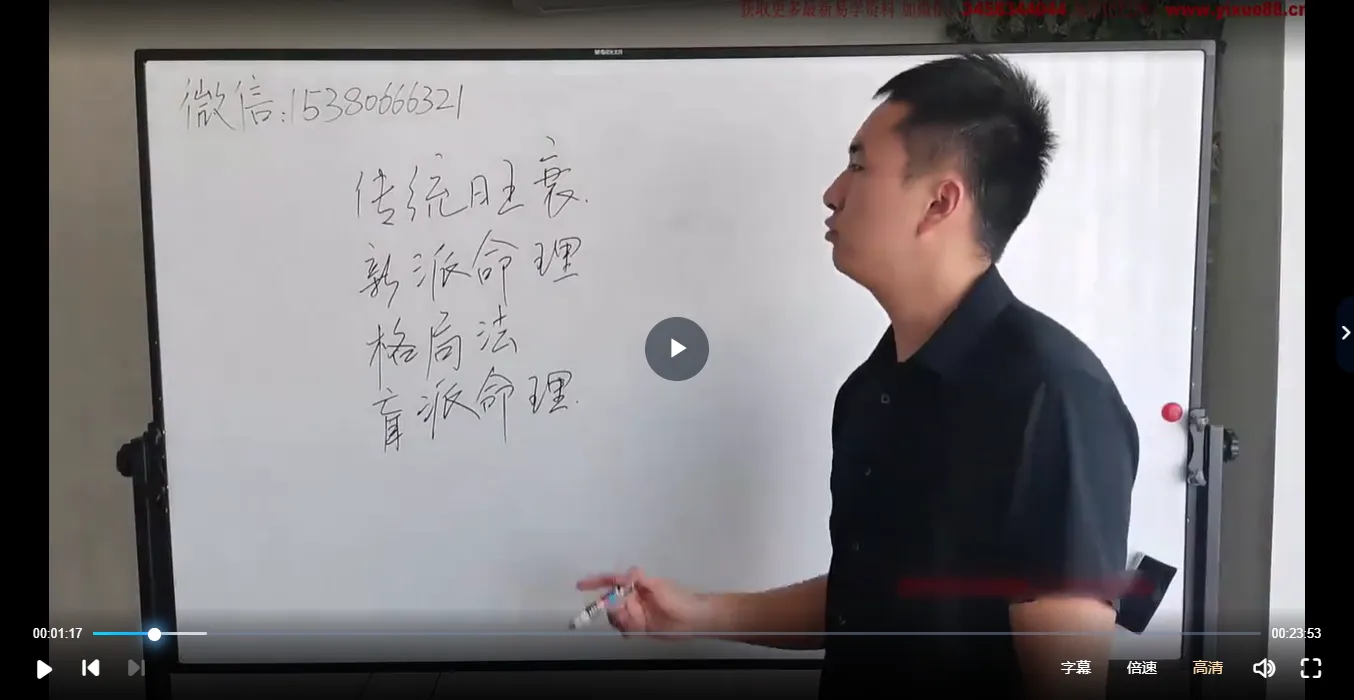 获取更多最新易学资料 加微信
www.yixue88.cn
微信:15380666321
传统旺衰.
新派命理
格局法
盲派命理.
00:01:17
00:23:53
字幕
倍速
高清